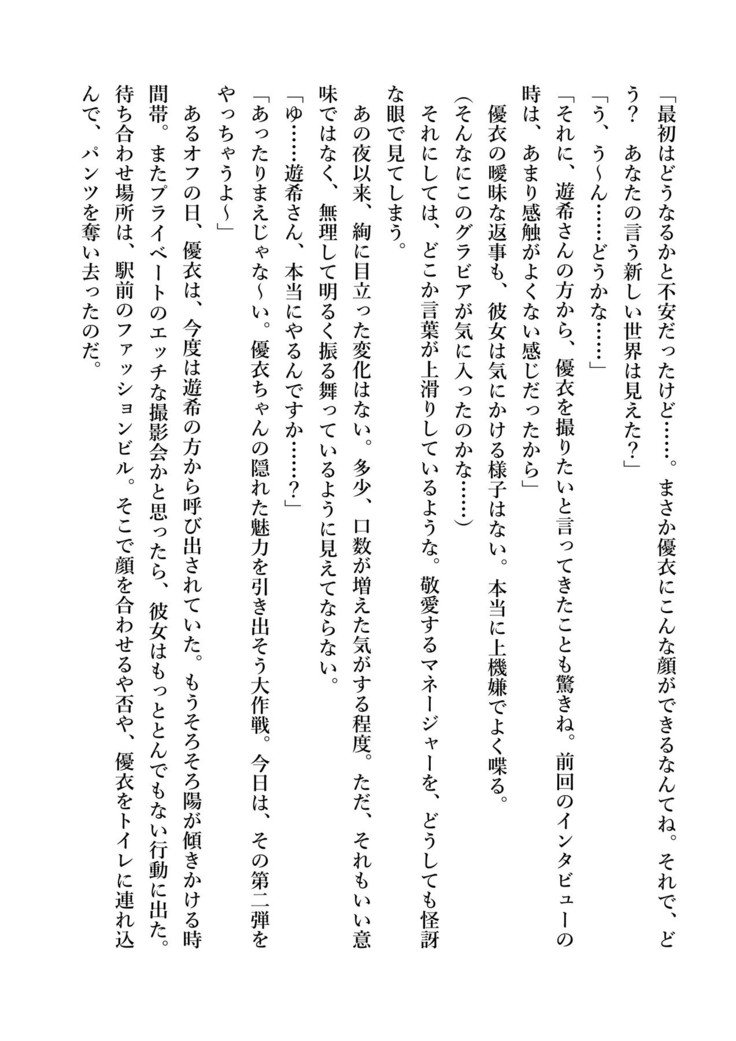 「最初はどうなるかと不安だったけど……。まさか優衣にこんな顔ができるなんてね。それで、ど
う？　あなたの言う新しい世界は見えた？」
「う、う～ん……どうかな……」
「それに、遊希さんの方から、優衣を撮りたいと言ってきたことも驚きね。前回のインタビューの
時は、あまり感触がよくない感じだったから」
　優衣の曖昧な返事も、彼女は気にかける様子はない。本当に上機嫌でよく喋る。
（そんなにこのグラビアが気に入ったのかな……）
　それにしては、どこか言葉が上滑りしているような。敬愛するマネージャーを、どうしても怪訝
な眼で見てしまう。
　あの夜以来、絢に目立った変化はない。多少、口数が増えた気がする程度。ただ、それもいい意
味ではなく、無理して明るく振る舞っているように見えてならない。
「ゆ……遊希さん、本当にやるんですか……？」
「あったりまえじゃな～い。優衣ちゃんの隠れた魅力を引き出そう大作戦。今日は、その第二弾を
やっちゃうよ～」
　あるオフの日、優衣は、今度は遊希の方から呼び出されていた。もうそろそろ陽が傾きかける時
間帯。またプライベートのエッチな撮影会かと思ったら、彼女はもっととんでもない行動に出た。
待ち合わせ場所は、駅前のファッションビル。そこで顔を合わせるや否や、優衣をトイレに連れ込
んで、パンツを奪い去ったのだ。